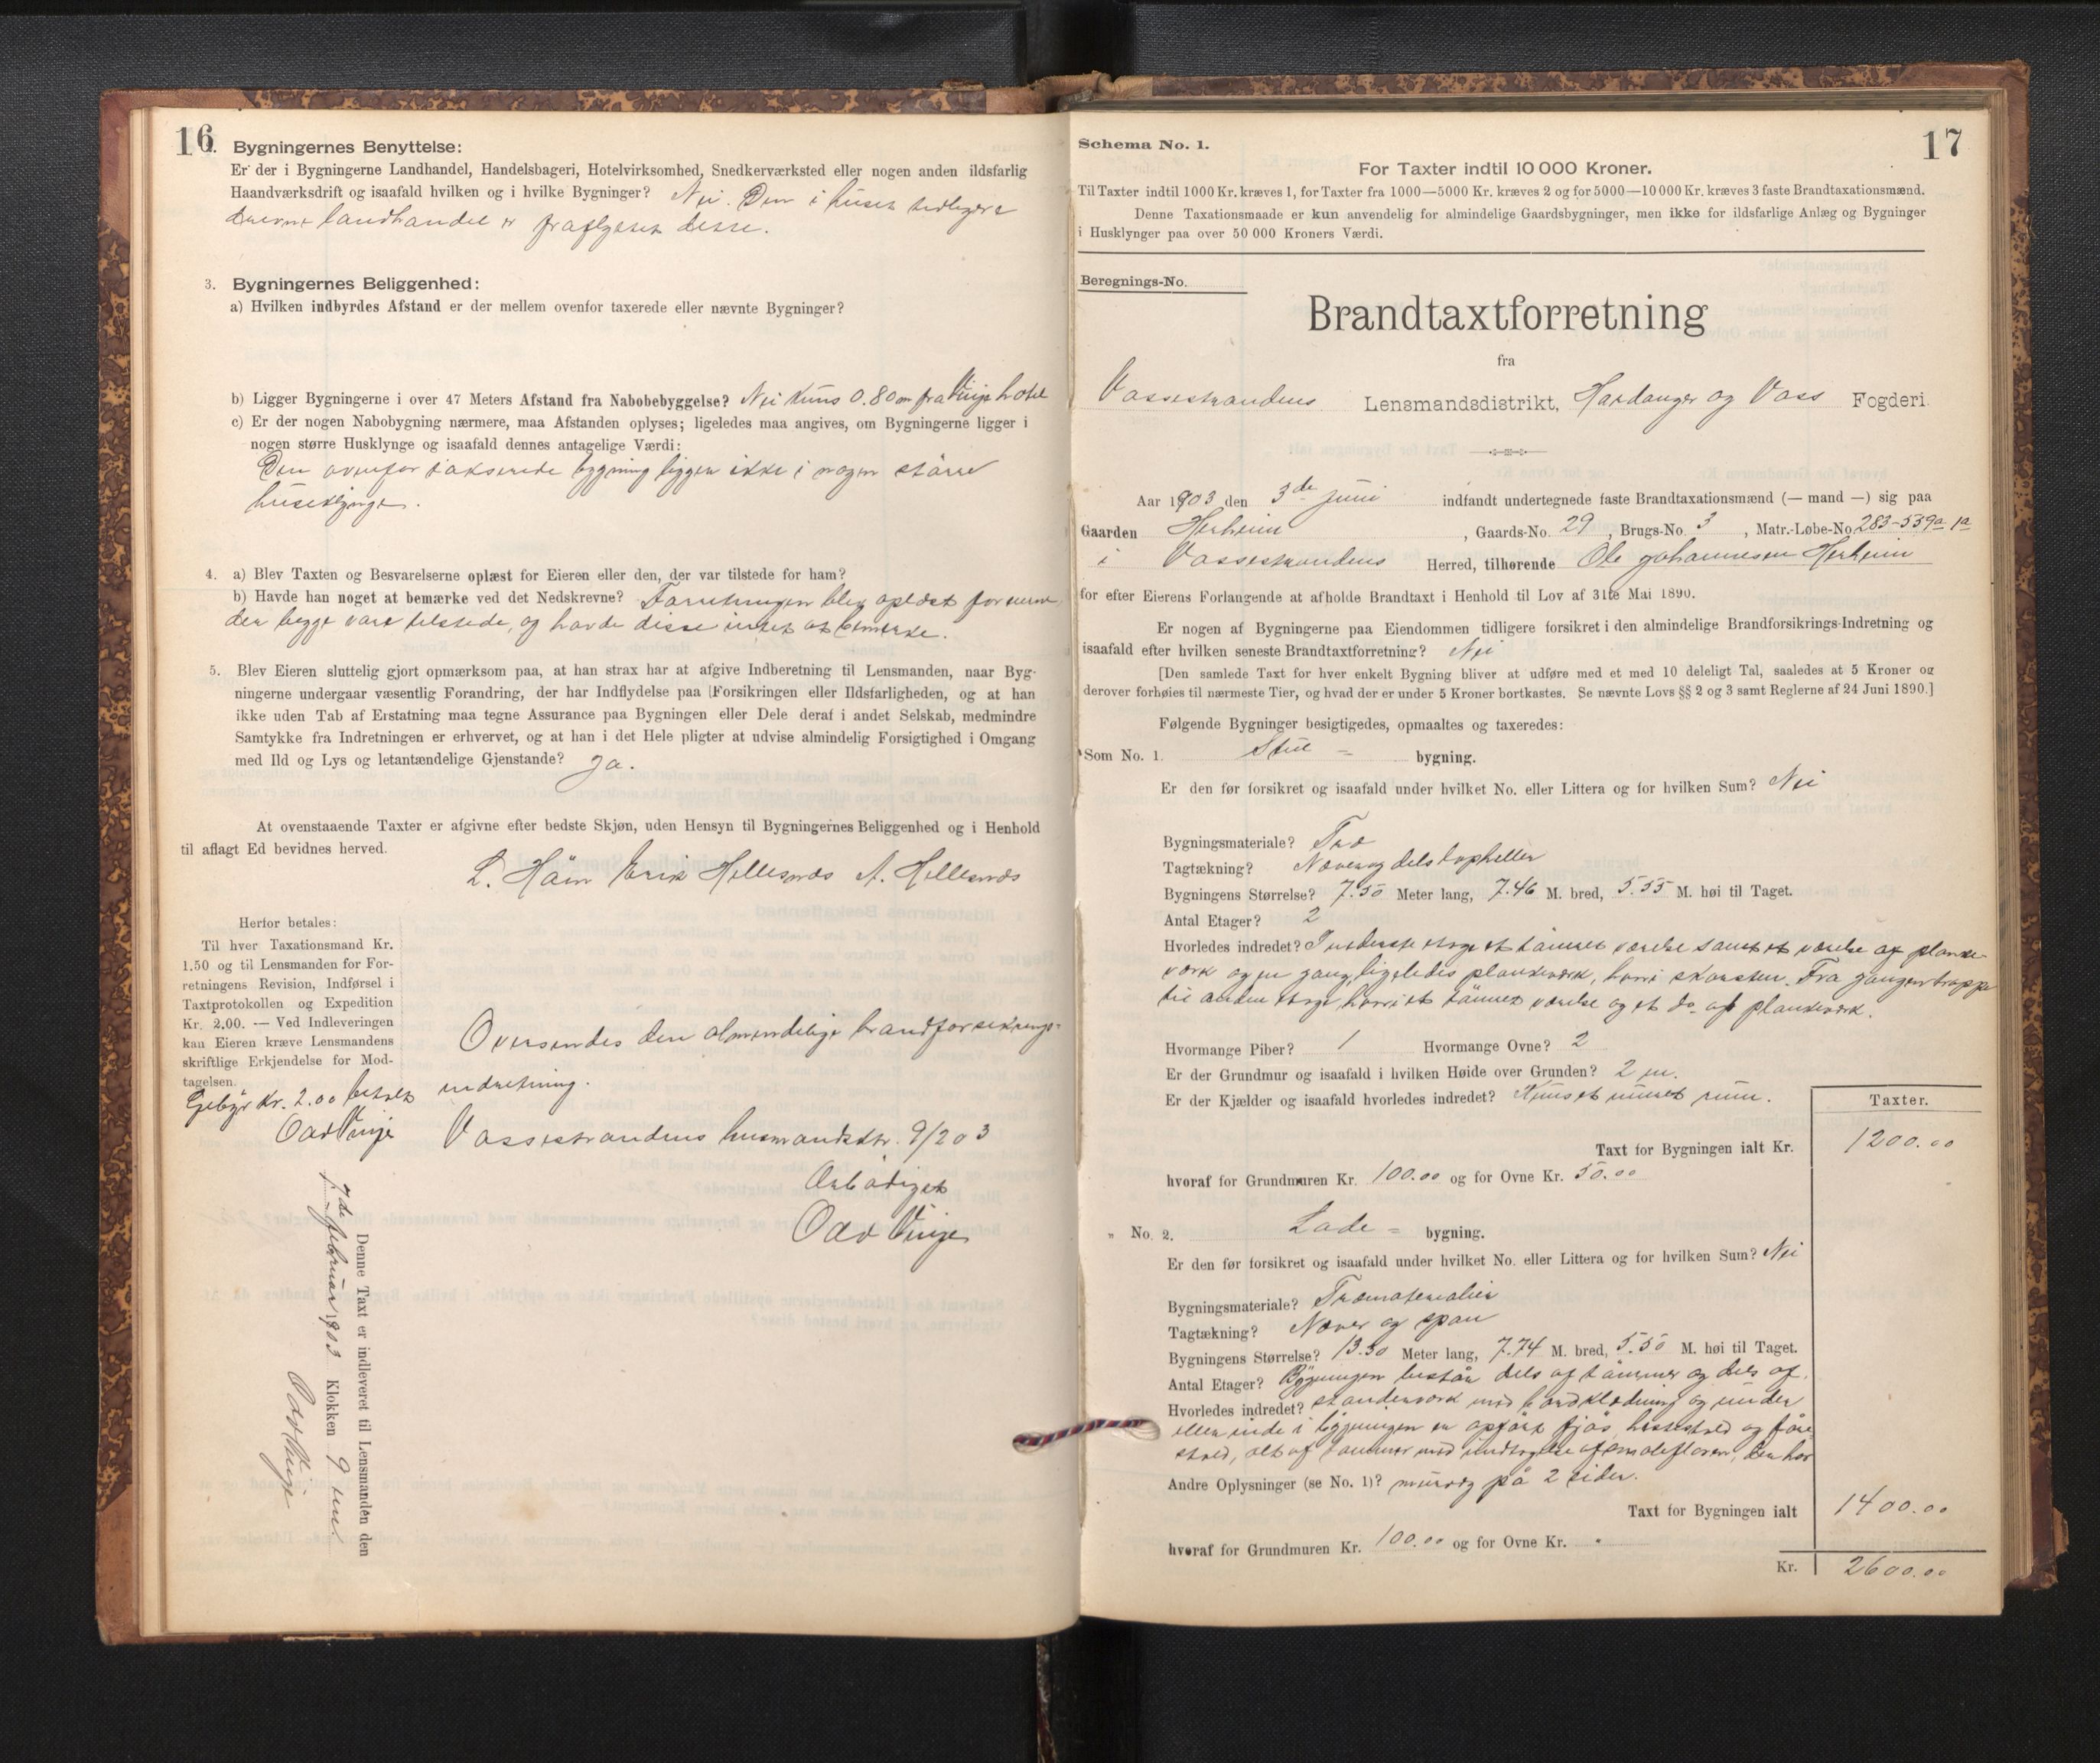 16
2. Bygningernes Benyttelse:
Er der i Bygningerne Landhandel, Handelsbageri, Hotelvirksomhed, Snedkerværksted eller nogen anden ildsfarlig
Haandværksdrift og isaafald hvilken og i hvilke Bygninger? Nei. Den i huset tidligere
drevne landhandel er fraflyttet desse.
3. Bygningernes Beliggenhed:
a) Hvilken indbyrdes Afstand er der mellem ovenfor taxerede eller nævnte Bygninger?
b) Ligger Bygningerne i over 47 Meters Afstand fra Nabobebyggelse? Nei kuns 0.80 m fra Vinje hotel
c) Er der nogen Nabobygning nærmere, maa Afstanden oplyses; ligeledes maa angives, om Bygningerne ligger i
nogen større Husklynge og isaafald dennes antagelige Værdi:
Den ovenfor takserede bygning ligger ikke i nogen større
huseklynge.
4. a) Blev Taxten og Besvarelserne oplæst for Eieren eller den, der var tilstede for ham?
b) Havde han noget at bemærke ved det Nedskrevne? Forretningen blev oplæst for
der begge vare tilstede, og havde disse intet at bemerke.
5. Blev Eieren sluttelig gjort opmærksom paa, at han strax har at afgive Indberetning til Lensmanden, naar Byg-
ningerne undergaar væsentlig Forandring, der har Indflydelse paa Forsikringen eller Ildsfarligheden, og at han
ikke uden Tab af Erstatning maa tegne Assurance paa Bygningen eller Dele deraf i andet Selskab, medmindre
Samtykke fra Indretningen er erhvervet, og at han i det Hele pligter at udvise almindelig Forsigtighed i Omgang
med Ild og Lys og letantændelige Gjenstande? Ja.
At ovenstaaende Taxter er afgivne efter bedste Skjøn, uden Hensyn til Bygningernes Beliggenhed og i Henhold
til aflagt Ed bevidnes herved.
L. Häin Erik Hellesnæs A. Hellesnæs
Herfor betales:
Til hver Taxationsmand Kr.
1.50 og til Lensmanden for For-
retningens Revision, Indførsel i
Taxtprotokollen og Expedition
Kr. 2.00. — Ved Indleveringen
kan Eieren kræve Lensmandens
skriftlige Erkjendelse for Mod-
tagelsen.
Gebyr Kr. 2.00 betalt
Odd Vinje
Oversendes den almindelige brandforsikrings-
indretning.
Vossestrandens lensmandsktr. 9/2 03
Ærbødigst
Odd Vinje
Denne Taxt er indleveret til Lensmanden den
7de februar 1903 Klokken 9 em
Odd Vinje
17
Schema No. 1.
For Taxter indtil 10 000 Kroner.
Til Taxter indtil 1000 Kr. kræves 1, for Taxter fra 1000—5000 Kr. kræves 2 og for 5000—10 000 Kr. kræves 3 faste Brandtaxationsmænd.
Denne Taxationsmaade er kun anvendelig for almindelige Gaardsbygninger, men ikke for ildsfarlige Anlæg og Bygninger
i Husklynger paa over 50 000 Kroners Værdi.
Beregnings-No.
Brandtaxtforretning
fra
Vossestrandens Lensmandsdistrikt, Hardanger og Voss Fogderi.
Aar 1903 den 3de juni indfandt undertegnede faste Brandtaxationsmænd (— mand —) sig paa
Gaarden Herheim, Gaards-No. 29, Brugs-No. 3, Matr.-Løbe-No. 283-539a 1a
i Vossestrandens Herred, tilhørende Ole Johannesen Herheim
for efter Eierens Forlangende at afholde Brandtaxt i Henhold til Lov af 31te Mai 1890.
Er nogen af Bygningerne paa Eiendommen tidligere forsikret i den almindelige Brandforsikrings-Indretning og
isaafald efter hvilken seneste Brandtaxtforretning? Nei
[Den samlede Taxt for hver enkelt Bygning bliver at udføre med et med 10 deleligt Tal, saaledes at 5 Kroner og
derover forhøies til nærmeste Tier, og hvad der er under 5 Kroner bortkastes. Se nævnte Lovs §§ 2 og 3 samt Reglerne af 24 Juni 1890.]
Følgende Bygninger besigtigedes, opmaaltes og taxeredes:
Som No. 1. Stue - bygning.
Er den før forsikret og isaafald under hvilket No. eller Littera og for hvilken Sum? Nei
Bygningsmateriale? Træ
Tagtækning? Næver og dels taphæller
Bygningens Størrelse? 7.50 Meter lang, 7.46 M. bred, 5.55 M. høi til Taget.
Antal Etager? 2
Hvorledes indredet? I nederste etage et tømret værelse samt et værelse af planke-
værk og en gang, ligeledes plankeværk, hvori skorsten. Fra gangen trappe
til anden etage, hvori et tømret værelse og et do. af plankeværk.
Hvormange Piber? 1 Hvormange Ovne? 2
Er der Grundmur og isaafald i hvilken Høide over Grunden? 2 m.
Er der Kjælder og isaafald hvorledes indredet? Kuns et muret rum.
Taxter.
Taxt for Bygningen ialt Kr. 1200.00
hvoraf for Grundmuren Kr. 100.00 og for Ovne Kr. 50.00
" No. 2. Lade - bygning.
Er den før forsikret og isaafald under hvilket No. eller Littera og for hvilken Sum? Nei
Bygningsmateriale? Træmaterialier
Tagtækning? Næver og spon
Bygningens Størrelse? 13.50 Meter lang, 7.74 M. bred, 5.50 M. høi til Taget.
Antal Etager? Bygningen består dels af tømmer og dels af
Hvorledes indredet? standerværk med bordklædning og under
eller inde i bygningen er opført fjøs, hestestald og fåre-
stald, alt af tømmer med undtagelse af smalefloren, den har
Andre Oplysninger (se No. 1)? murvæg på 2 sider.
Taxt for Bygningen ialt 1400.00
hvoraf for Grundmuren Kr. 100.00 og for Ovne Kr. "
Kr. 2600.00